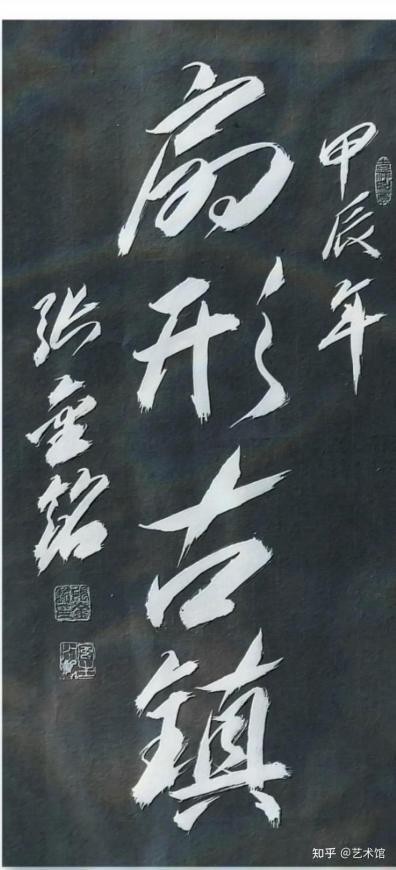 甲辰年
扇形古镇
张金铭
知乎 @艺术馆